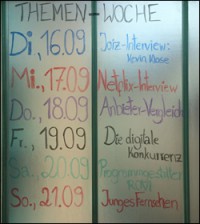 THEMEN-WOCHE
Di, 16.09 Jazz-Interview:
Kevin Klose
Mi., 17.09 Netflix-Interview
Do., 18.09 Anbieter-Vergleich
Fr., 19.09 Die digitale
Konkurrenz
Sa., 20.09
So., 21.09 Junges Fernsehen